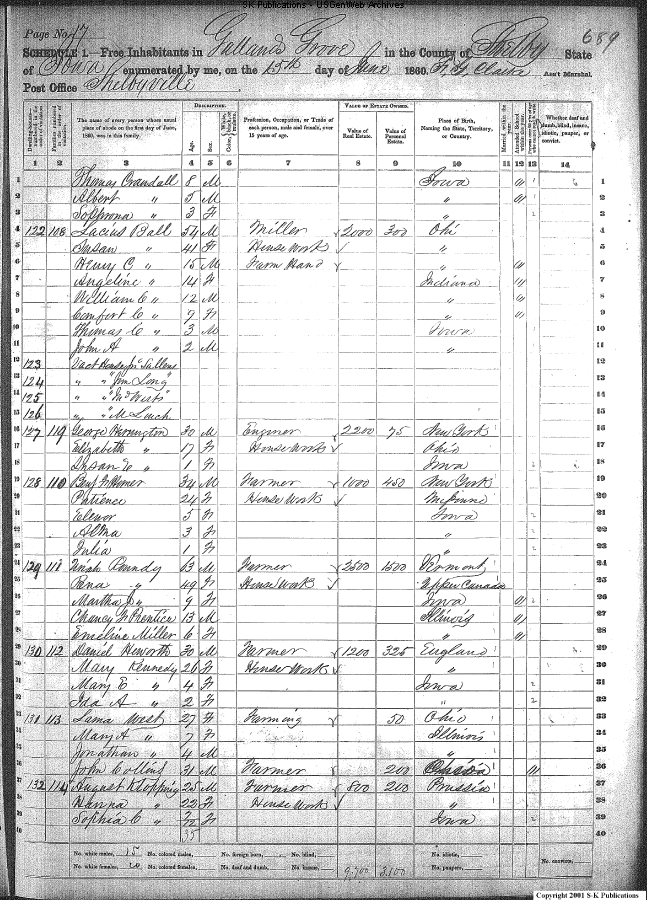 S-K Publications - USGenWeb Archives
Page No. 17
689
SCHEDULE 1.—Free Inhabitants in Gallands Grove in the County of Shelby State
of Iowa enumerated by me, on the 15th day of June 1860. Ass't Marshal.
Post Office Shelbyville
DESCRIPTION. VALUE OF ESTATE OWNED.
The name of every person whose usual place of abode on the first day of June, 1860, was in this family.
Age. Sex.
Profession, Occupation, or Trade of each person, male and female, over 15 years of age.
Value of Real Estate. Value of Personal Estate.
Place of Birth, Naming the State, Territory, or Country.
Married within the year. Attended School within the year.
Whether deaf and dumb, blind, insane, idiotic, pauper, or convict.
1 2 3 4 5 6 7 8 9 10 11 12 13 14
1 Thomas Crandall 8 M Iowa " 1 1
2 Albert " 5 M " " 2
3 Sophrona " 3 F " 3
4 122 108 Lucius Ball 54 M Miller 2000 300 Ohi 4
5 Susan " 41 F House Work " 5
6 Henry C " 15 M Farm Hand " " 6
7 Angeline " 14 F Indiana " 7
8 William C " 12 M " " 8
9 Comfort C " 9 F " " 9
10 Thomas C " 3 M Iowa 10
11 John A " 2 M " 11
12 123 Vact House 12
13 124 " " Jim Long" 13
14 125 " " 14
15 126 " " 15
16 127 119 George 30 M Enginer 2200 75 New York 16
17 Elizabeth " 17 F House Work Ohio 17
18 Susan E " 1 F Iowa 18
19 128 110 34 M Farmer 1000 450 New York 19
20 Patience 24 F House Work 20
21 Elenor 5 F Iowa 21
22 Alma 3 F " 22
23 Julia 1 F " 23
24 129 111 Uriah 63 M Farmer 2500 1500 Vermont 24
25 " 49 F House Work Upper Canada 25
26 Martha J " 9 F Iowa " 26
27 Prentice 13 M Illinois " 27
28 Emeline Miller 6 F " " 28
29 130 112 Daniel Heworth 30 M Farmer 1200 325 England 29
30 Mary Kennedy 26 F House Work " 30
31 Mary E " 4 F Iowa 31
32 Ida A " 2 F " 32
33 131 113 West 27 F Farming 50 Ohio 33
34 Mary A " 7 F Illinois 34
35 Jonathan " 4 M " 35
36 John Collins 31 M Farmer 200 36
37 132 114 August Klopping 25 M Farmer 800 200 Prussia 37
38 Hanna " 22 F House Work " 38
39 Sophia C " F Iowa 39
40 35 40
No. white males, 15 No. colored males, No. foreign born, No. blind, No. idiotic, No. convicts,
No. white females, 20 No. colored females, No. deaf and dumb, No. insane, 9,700 3,100 No. paupers,
Copyright 2001 S-K Publications